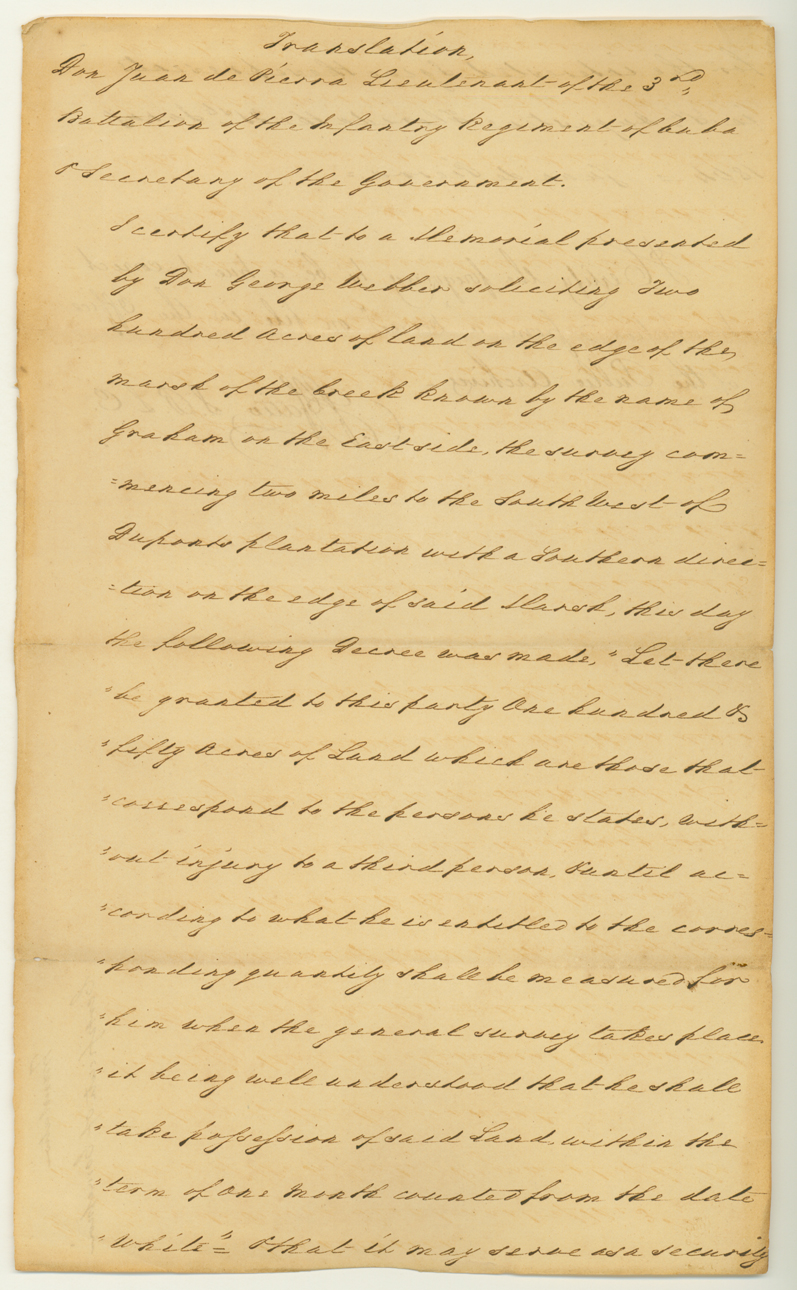 Translation,
Don Juan de Pierra Lieutenant of the 3rd,
Battalion of the Infantry Regiment of Cuba
& Secretary of the Government.
I certify that to a Memorial presented
by Don George Webber soliciting Two
hundred Acres of land on the edge of the
marsh of the Creek known by the name of
Graham on the East side, the survey com=
=mencing two miles to the South West of
Duponts plantation with a Southern direc=
=tion on the edge of said Marsh, this day
the following Decree was made, "Let there
"be granted to this party One hundred &
"fifty Acres of Land which are those that
"correspond to the persons he states, with=
"out injury to a third person, & until ac=
"cording to what he is entitled to the corres=
"ponding quantity shall be measured for
"him when the general survey takes place
"it being well understood that he shall
"take possession of said Land, within the
"term of One Month counted from the date
"White"= & that it may serve as a security